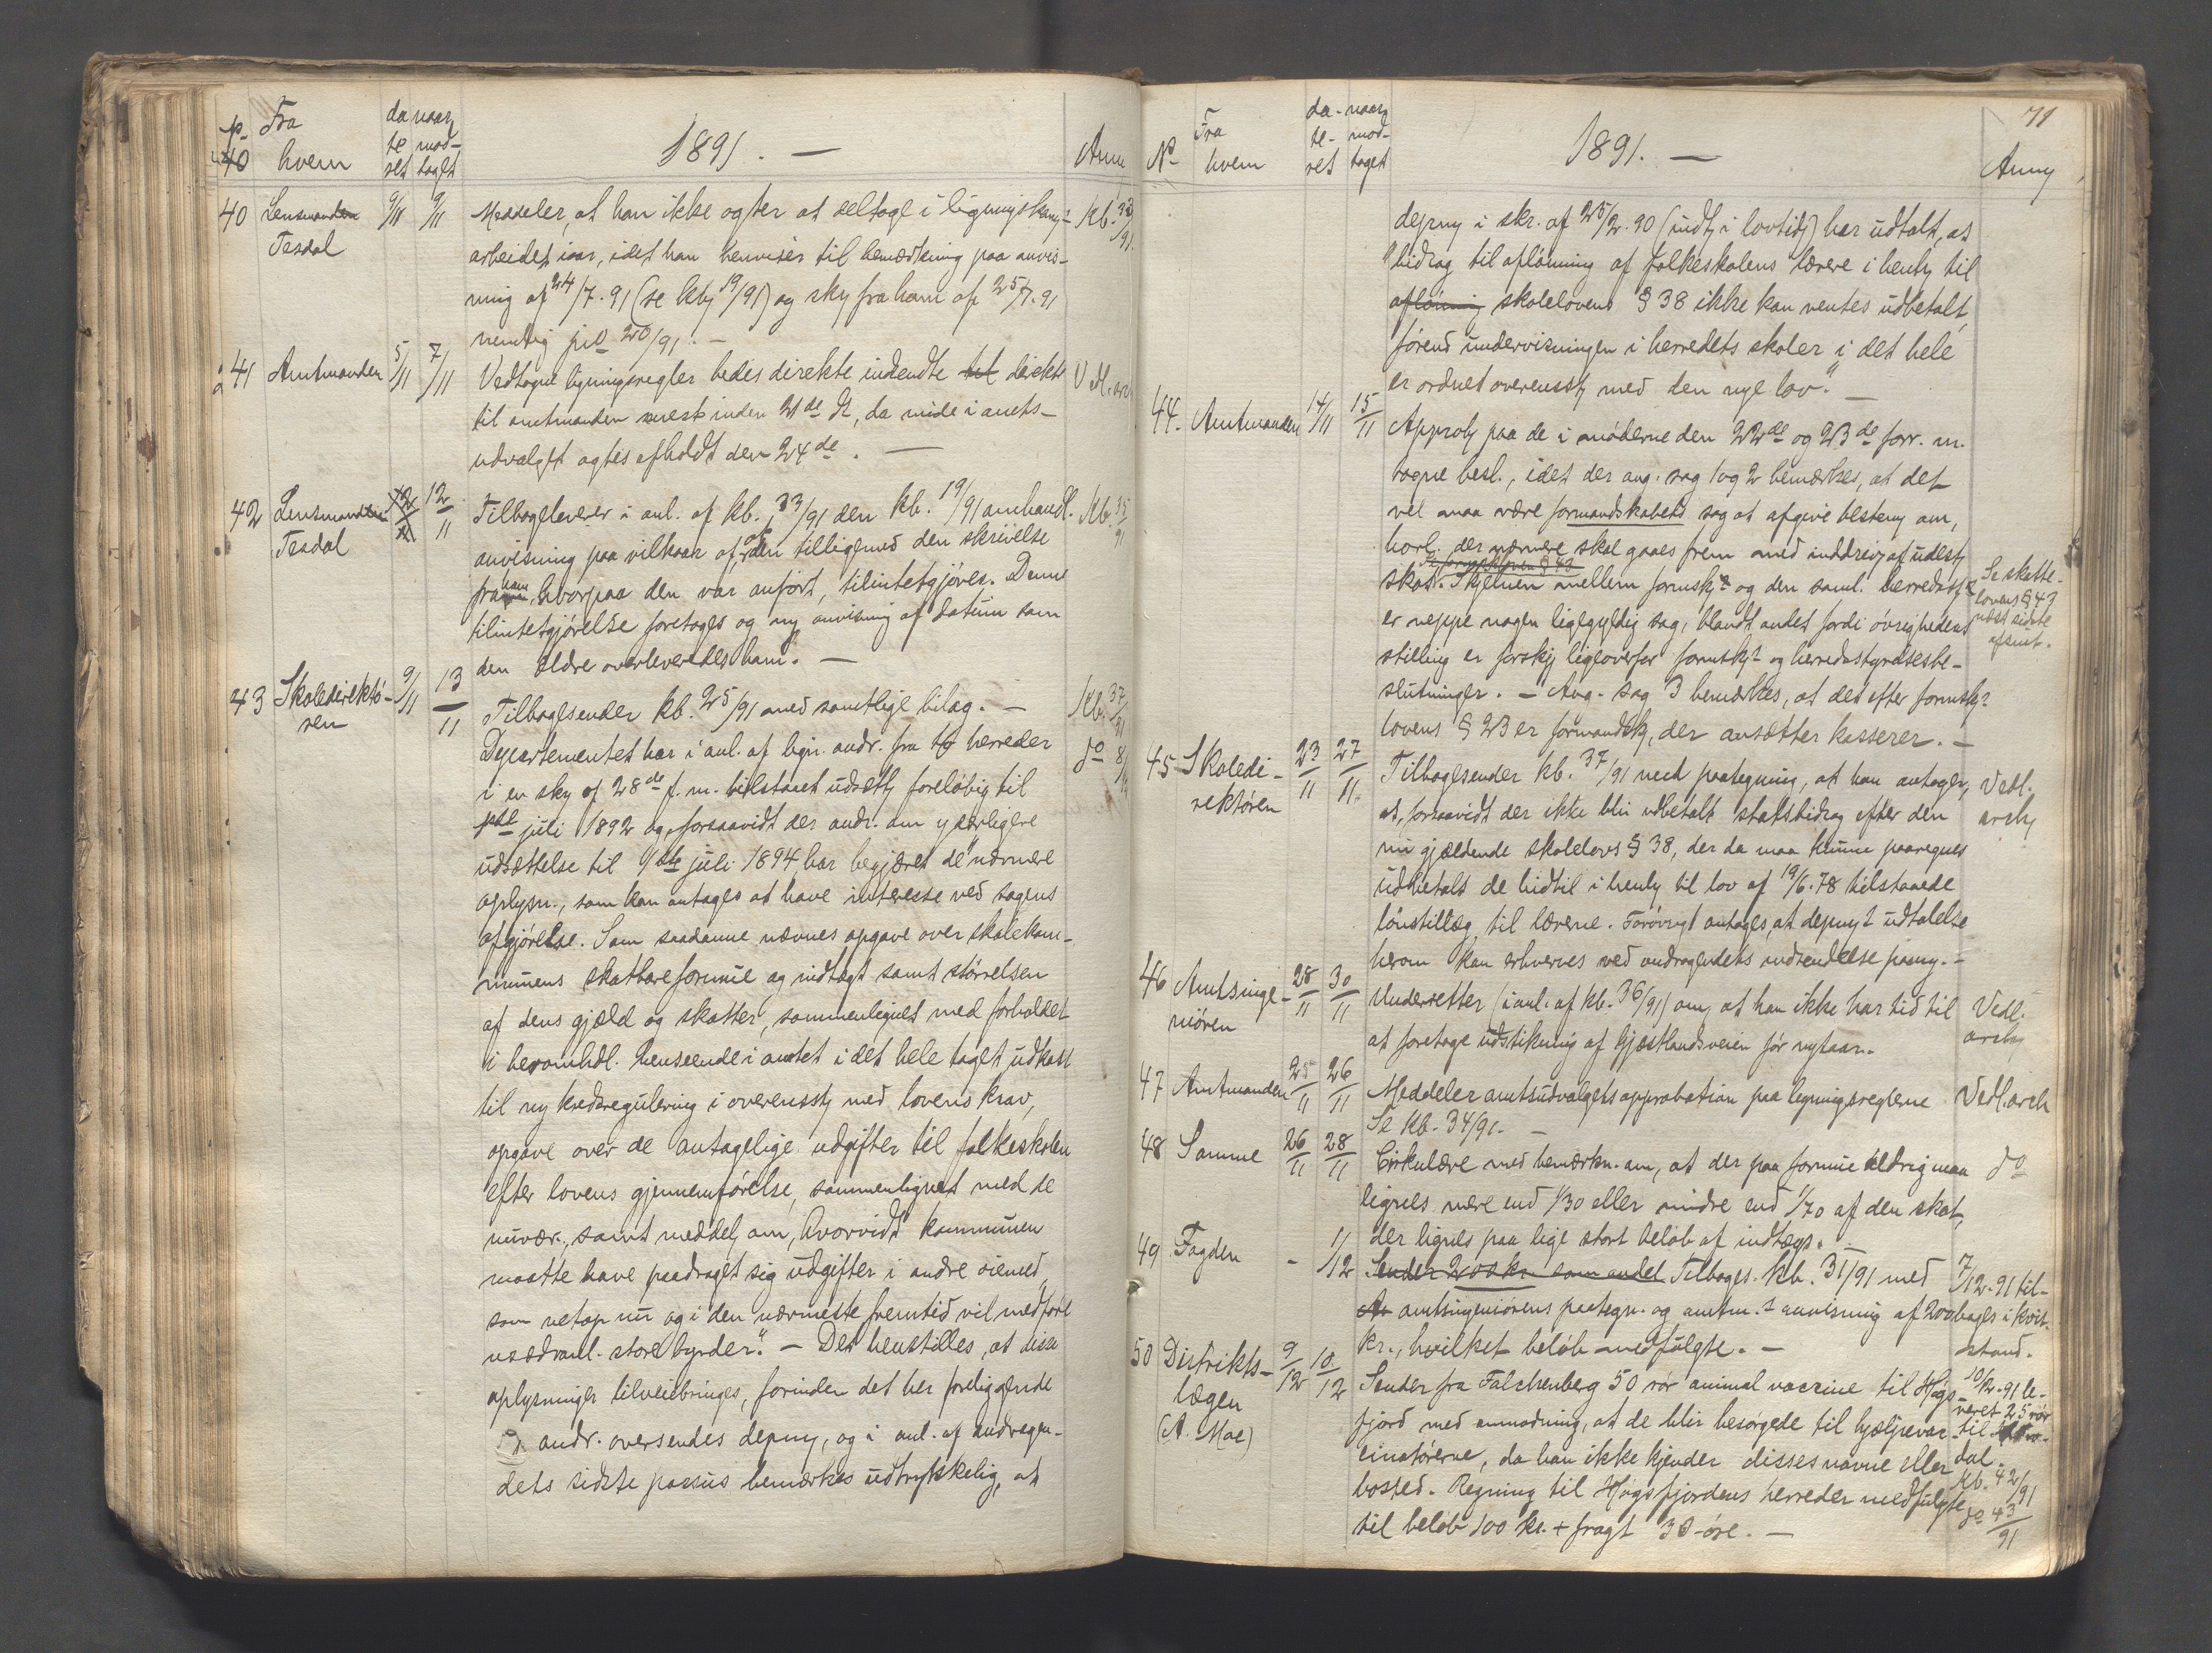 Fra hvem
da te ret
naar mod- taget
1891. —
Anm
40 Lensmanden Tesdal 9/11 9/11 Meddeler, at han ikke agter at deltage i ligningskom.- Kb. 33/91.
arbeidet iaar, idet han henviser til bemærkning paa anvis-
ning af 24/7.91 (se kby 19/91) og sky fra ham af 25/7.91
nemlig jno 20/91. —
41 Amtmanden 5/11 7/11 Vedtagne ligningsregler bedes direkte indsendte til direkte Vdl. arc
til amtmanden senest inden 21de d., da møde i amts-
udvalget agtes afholdt den 24de. —
42 Lensmanden Tesdal 12/11 12/11 Tilbageleverer i anl. af kb. 33/91 den kb. 19/91 omhandl. Kb. 35/91
anvisning paa vilkaar af, at den tilligemed den skrivelse
fra ham, hvorpaa den var anført, tilintetgjøres. Denne
tilintetgjørelse foretages og ny anvisning af datum som
den ældre overleveredes ham. —
43 Skoledirektø-ren 9/11 13/11 Tilbagesender kb. 25/91 med samtlige bilag. — Kb. 37/91
Departementet har i anl. af lign. andr. fra 10 herreder do 8/
i en sky af 28de f. m. tilstaaet udsætty foreløbig til
1ste juli 1892 og, forsaavidt der andr. om yderligere
udsættelse til 1ste juli 1894, har begjæret de "nærmere
oplysn., som kan antages at have interesse ved sagens
afgjørelse. Som saadanne nævnes opgave over skolekom-
munens skatbare formue og indtægt samt størrelsen
af dens gjæld og skatter, sammenlignet med forholdet
i heromhdl. henseende i amtet i det hele taget, udkast
til ny kredsregulering i overensstj med lovens krav,
opgave over de antagelige udgifter til folkeskolen
efter lovens gjennemførelse, sammenlignet med de
nuvær., samt meddelj om, hvorvidt kommunen
maatte have paadraget sig udgifter i andre øiemed,
som netop nu og i den nærmeste fremtid vil medføre
usædvanl. store byrder." — Det henstilles, at disse
oplysninger tilveiebringes, forinden det her foreliggende
andr. oversendes depmy, og i anl. af andragen-
dets sidste passus bemærkes udtrykkelig, at
71
No Fra hvem
da- te- ret
naar mod- taget
1891. —
Anmj
depmy i skr. af 25/2.90 (indtj i lovtidj) har udtalt, at
"bidrag til aflønning af folkeskolens lærere i henhj til
aflønning skolelovens § 38 ikke kan ventes udbetalt,
førend undervisningen i herredets skoler i det hele
er ordnet overensstj med den nye lov". —
44. Amtmanden 14/11 15/11 Approbj paa de i møderne den 22de og 23de forr. m.
tagne besl., idet der ang. sag 1 og 2 bemærkes, at det
vel maa være formandskabets sag at afgive bestemj om,
horl. der nærmere skal gaaes frem med inddrivj af udestj
skat. Skjelnen mellem formskj og den saml. herredsst Se skatte-
lovens § 43
næst sidste
afsnit.
er neppe nogen ligegyldig sag, blandt andet fordi øvrighedens
stilling er forskj ligeoverfor formskj og herredsstyrelsesbe-
slutninger. — Ang. sag 3 bemærkes, at det efter formskj
lovens § 23 er formandskj, der ansætter kasserer. —
45 Skoledi-rektøren 23/11 27/11. Tilbagesender kb. 37/91 med paategning, at han antager, Vedl. archj
at, forsaavidt der ikke blir udbetalt statsbidrag efter den
nu gjældende skolelovs § 38, der da maa kunne paaregnes
udbetalt de hidtil i henhj til lov af 19/6.78 tilstaaede
lønstillæg til lærerne. Forøvrigt antages, at depmj udtalelse
herom kan erhverves ved andragendets indsendelse paany. —
46 Amtsinge-niøren 28/11 30/11 Underretter (i anl. af kb. 36/91) om, at han ikke har tid til Vedl. archj
at foretage udstikning af Gjestlandsveien før nytaar.
47 Amtmanden 25/11 26/11 Meddeler amtsudvalgets approbation paa ligningsreglerne Vedl. arch
Se kb. 34/91. —
48 Samme 26/11 28/11 Cirkulære med bemærkn. om, at der paa formue aldrig maa do
lignes mere end 1/30 eller mindre end 1/70 af den skat,
der lignes paa lige stort beløb af indtægt. —
49 Fogden - 1/12 Sender 200 kr. som andel Tilbages. kb. 31/91 med 7/12.91 til-
amtsingeniørens paategn. og amtm. anvisning af 200 bages i kvit.
kr., hvilket beløb medfulgte. — stand.
50 Distrikts-lægen (A. Moe) 9/12 10/12 Sender fra Falchenberg 50 rør animal vaccine til Høgs- 10/12.91 le-
fjord med anmodning, at de blir besørgede til hjælpevac- veret 25 rør til
cinatørerne, da han ikke kjender disses navne eller dal.
bosted. Regning til Høgsfjordens herreder medfulgte Kb. 42/91
til beløb 100 kr. + fragt 30 øre. — do 43/91